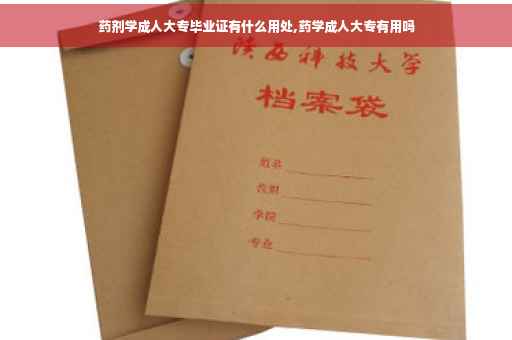 药剂学成人大专毕业证有什么用处,药学成人大专有用吗
陕西科技大学
档案袋
姓名
学院
专业